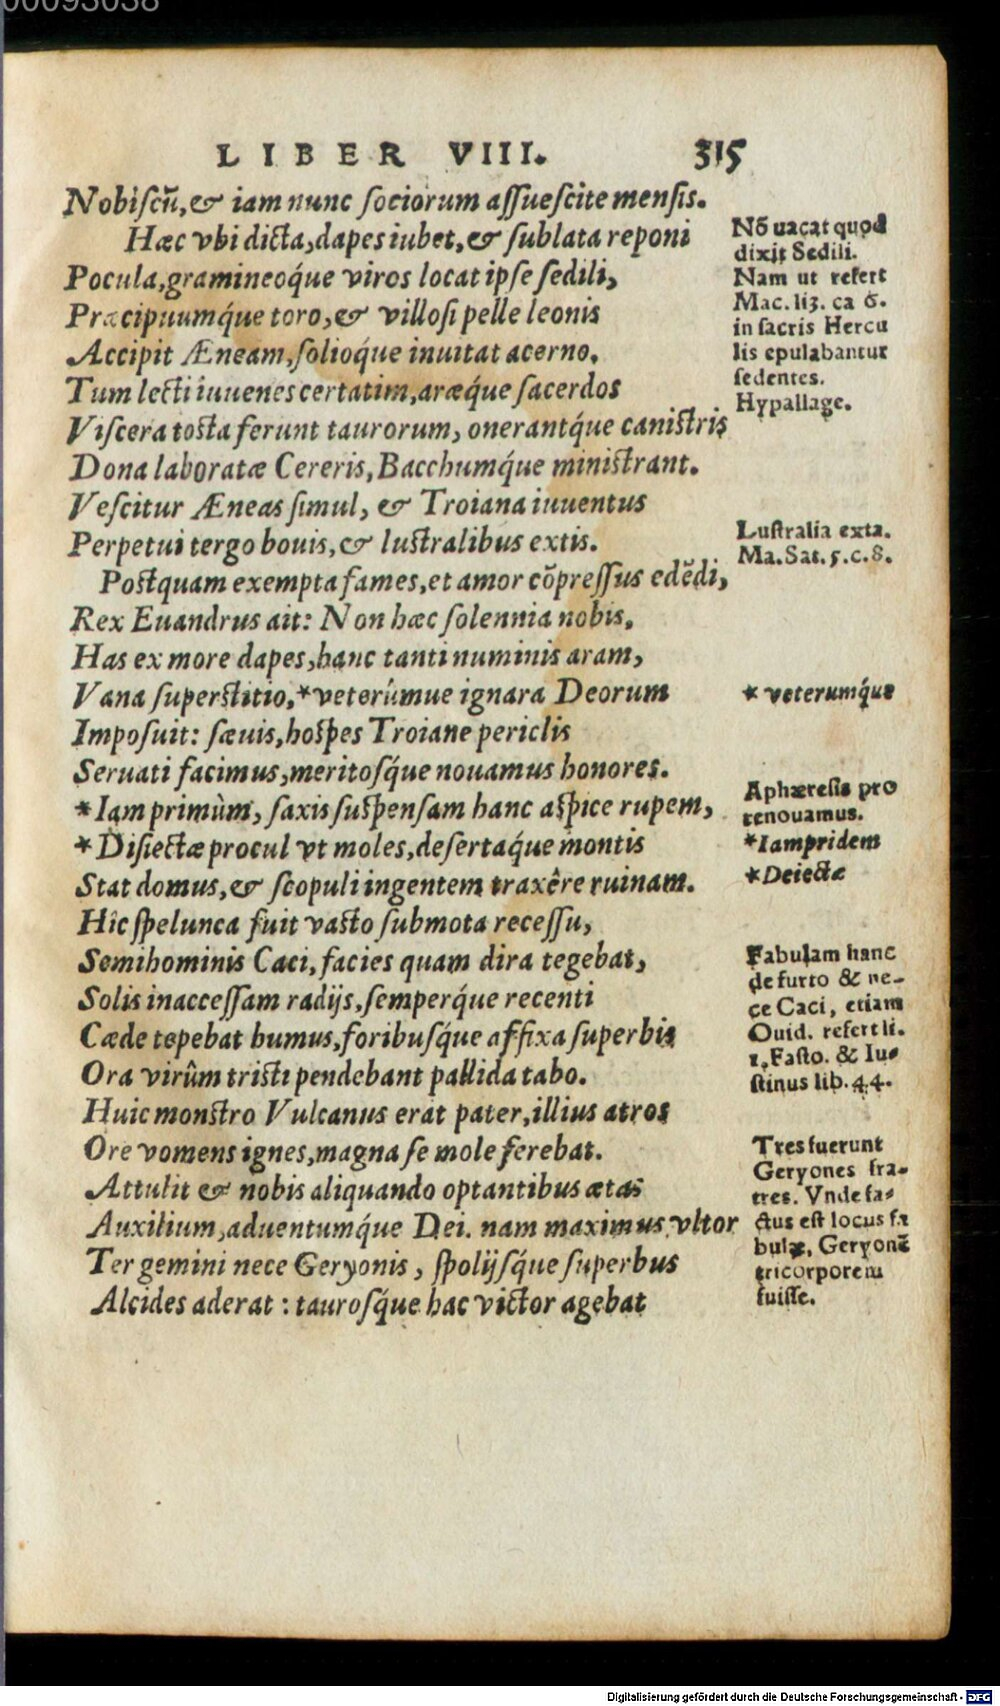 00093038
LIBER VIII. 315
Nobiſcũ, & iam nunc ſociorum aſſueſcite menſis.
Hæc vbi dicta, dapes iubet, & ſublata reponi
Pocula, gramineoq́ue viros locat ipſe ſedili,
Præcipuumq́ue toro, & villoſi pelle leonis
Accipit Æneam, ſolioq́ue inuitat acerno.
Tum lecti iuuenes certatim, aræq́ue ſacerdos
Viſcera toſta ferunt taurorum, onerantq́ue caniſtris
Dona laboratæ Cereris, Bacchumq́ue miniſtrant.
Veſcitur Æneas ſimul, & Troiana iuuentus
Perpetui tergo bouis, & luſtralibus extis.
Poſtquam exempta fames, et amor cõpreſſus edẽdi,
Rex Euandrus ait: Non hæc ſolennia nobis,
Has ex more dapes, hanc tanti numinis aram,
Vana ſuperſtitio, *veterúmue ignara Deorum
Impoſuit: ſæuis, hoſpes Troiane periclis
Seruati facimus, meritoſq́ue nouamus honores.
*Iam primùm, ſaxis ſuſpenſam hanc aſpice rupem,
*Diſiectæ procul vt moles, deſertaq́ue montis
Stat domus, & ſcopuli ingentem traxêre ruinam.
Hîc ſpelunca fuit vaſto ſubmota receſſu,
Semihominis Caci, facies quam dira tegebat,
Solis inacceſſam radijs, ſemperq́ue recenti
Cæde tepebat humus, foribuſq́ue affixa ſuperbis
Ora virûm triſti pendebant pallida tabo.
Huic monſtro Vulcanus erat pater, illius atros
Ore vomens ignes, magna ſe mole ferebat.
Attulit & nobis aliquando optantibus ætas
Auxilium, aduentumq́ue Dei. nam maximus vltor
Ter gemini nece Geryonis, ſpolijſq́ue ſuperbus
Alcides aderat: tauroſq́ue hac victor agebat
Nõ uacat quod
dixit Sedili.
Nam ut refert
Mac. li3. ca 6.
in ſacris Hercu
lis epulabantur
ſedentes.
Hypallage.
Luſtralia exta.
Ma. Sat. 5. c. 8.
* veterumq́ue
Aphæreſis pro
renouamus.
*Iampridem
*Deiectæ
Fabulam hanc
de furto & ne-
ce Caci, etiam
Ouid. refert li.
1. Faſto. & Iu-
ſtinus lib. 44.
Tres fuerunt
Geryones fra-
tres. Vnde fa-
ctus eſt locus fa
bulæ, Geryonẽ
tricorporem
fuiſſe.
Digitalisierung gefördert durch die Deutsche Forschungsgemeinschaft - DFG